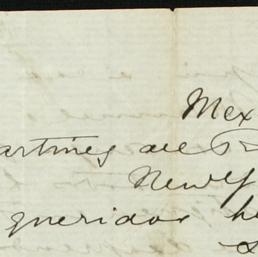 Mex
artines de
New Y
queridos h